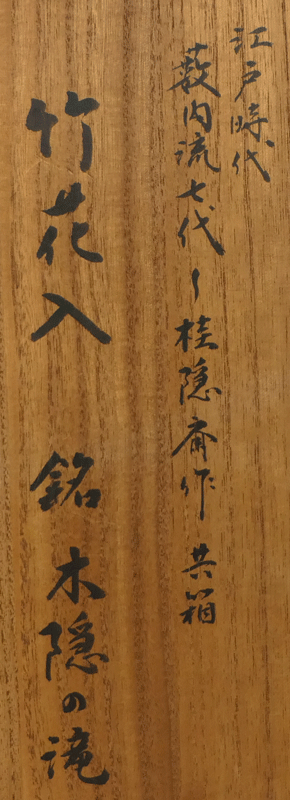 江戸時代
藪内流七代 桂隠斎作 共箱
竹花入 銘 木隠の滝